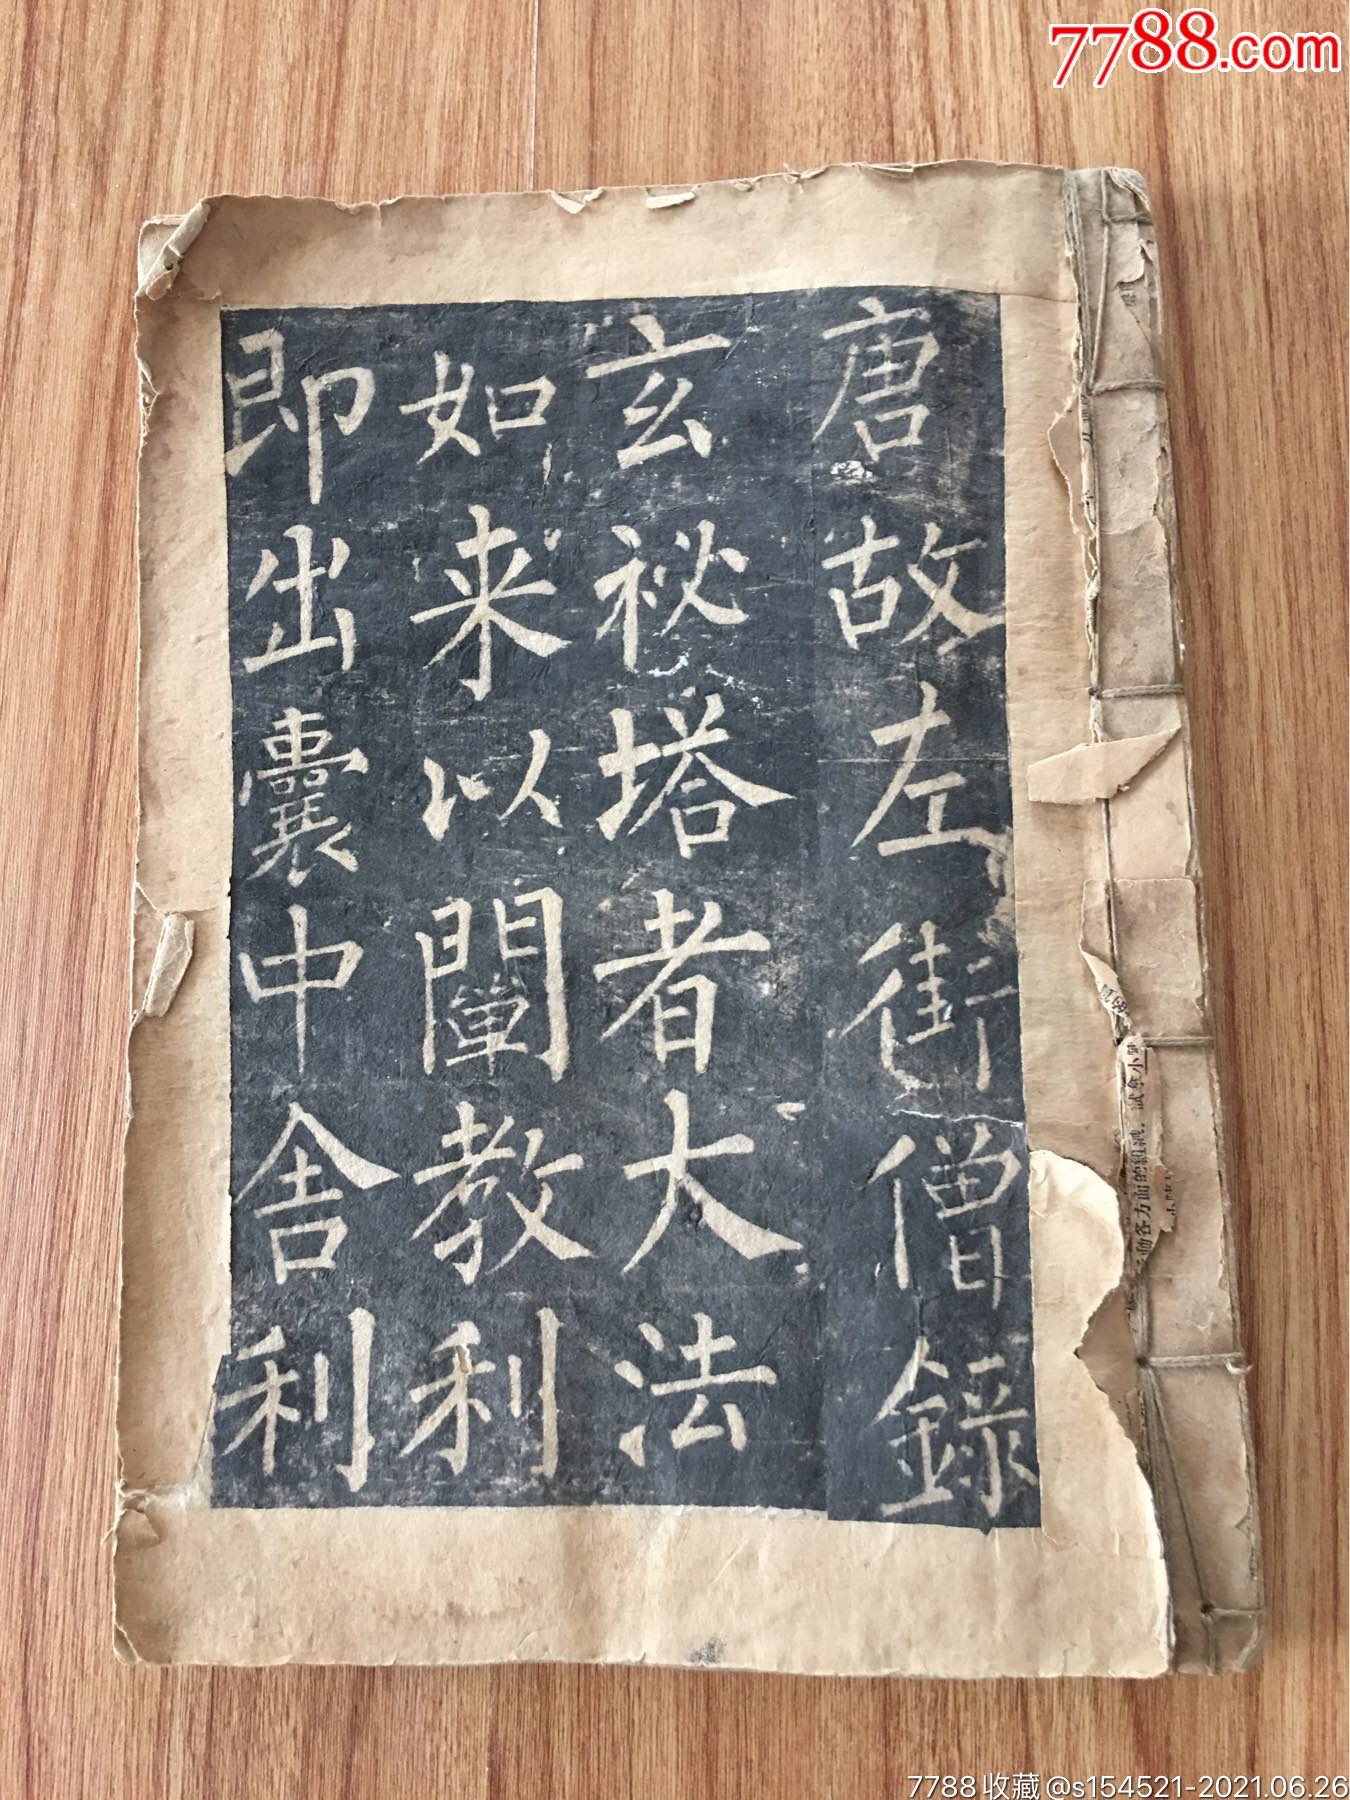 7788.com
唐故左街僧錄
玄祕塔者大法
如来以闡教利
即出囊中舎利
動各方面的組織，試拿小
7788收藏@s154521-2021.06.26